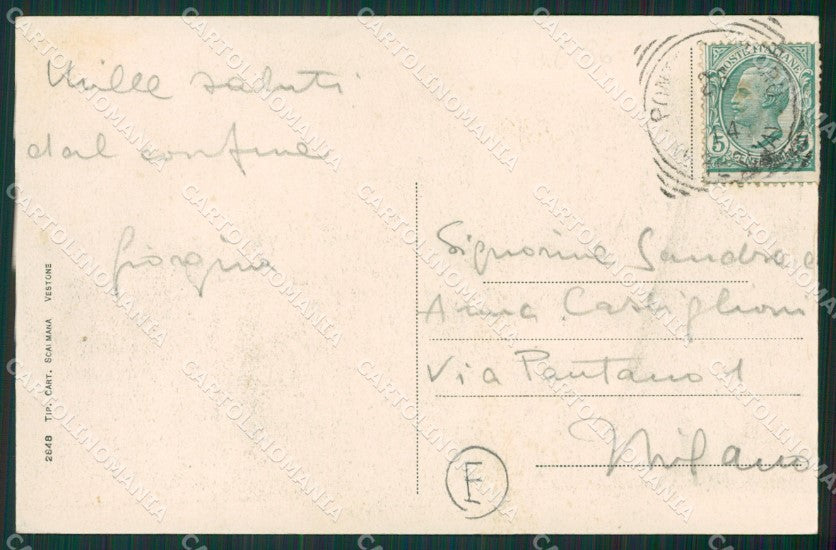 Mille saluti
dal confine
Giorgina
2648 TIP. CART. SCALMANA VESTONE
POSTE ITALIANE
5 5
Signorine Sandra e
Anna Castiglioni
Via Pantano 1
Milano
E
CARTOLINOMANIA